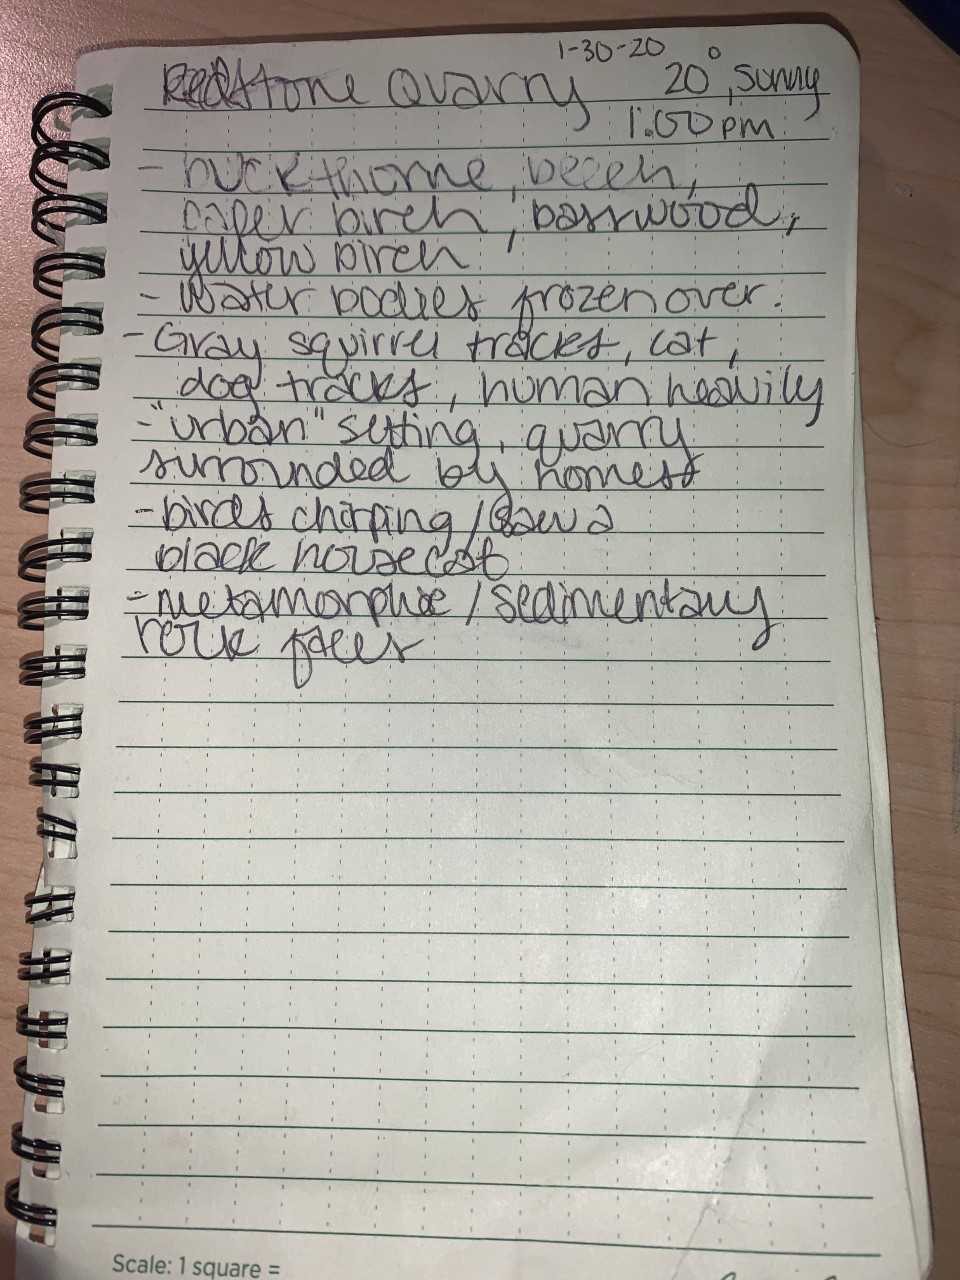 1-30-20
Redstone Quarry 20°, sunny
1:00pm
- buckthorne, beech,
paper birch, basswood,
yellow birch
- Water bodies frozen over.
- Gray squirrel tracks, cat,
dog tracks, human heavily
- "urban" setting, quarry
surrounded by homes
- birds chirping / saw a
black house cat
- metamorphic / sedimentary
rock faces
Scale: 1 square =